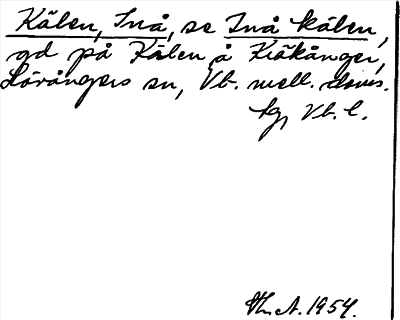 Kälen, Inå, se Inå kälen,
gd på Kälen å Kräkånger,
Lövångers sn, Vb. mell. doms.
hg, Vb. l.
Th. A. 1954.